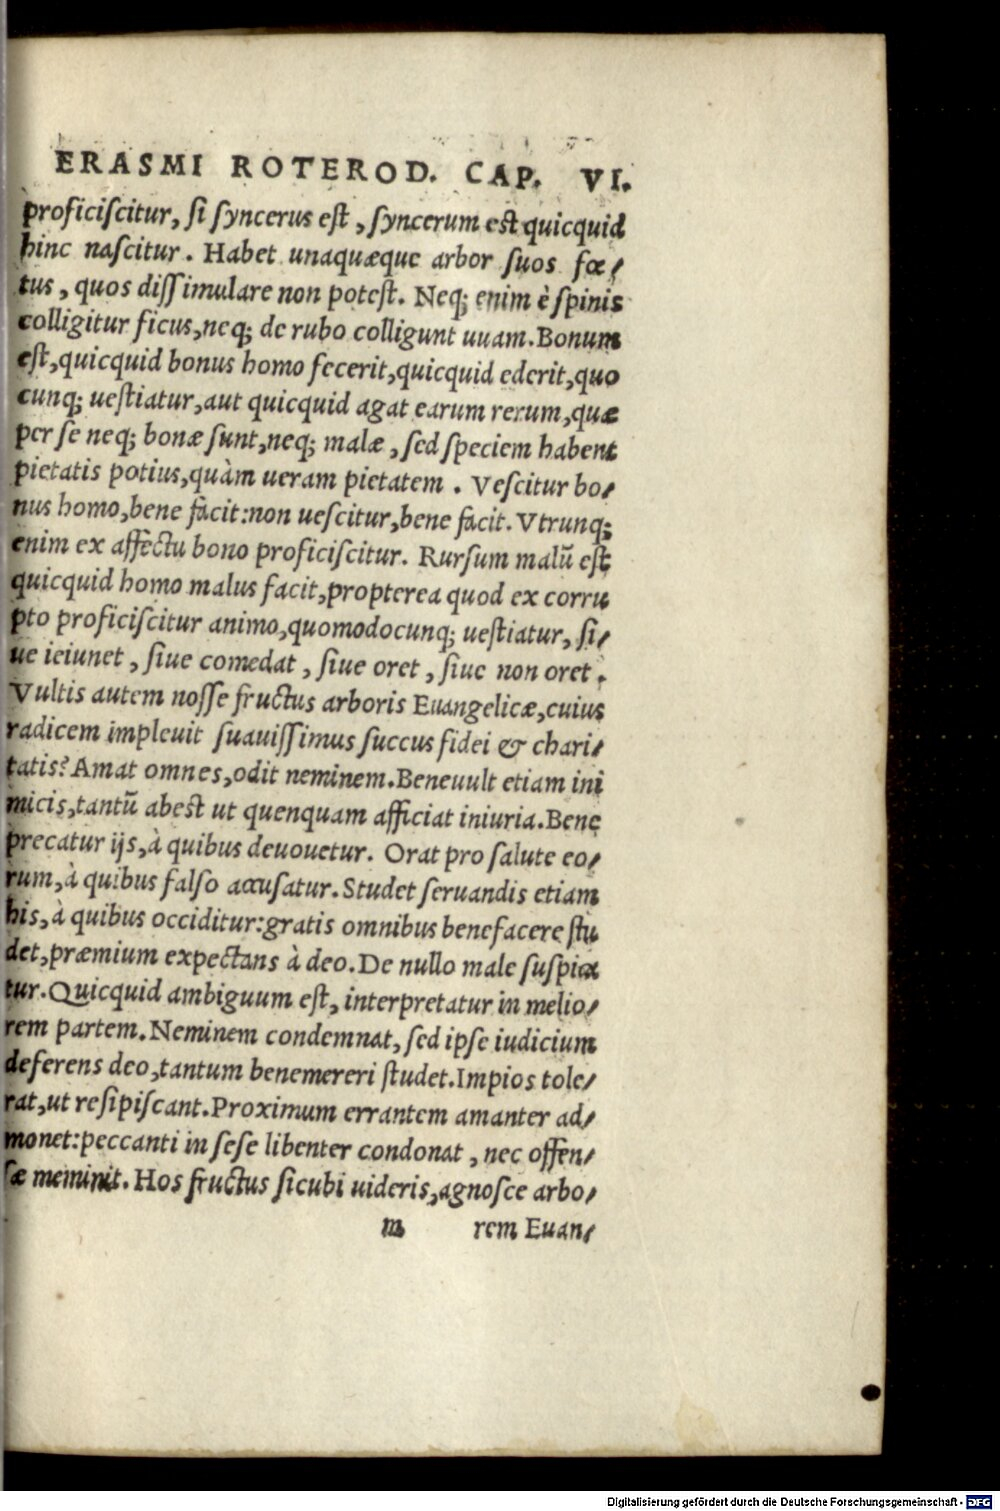 ERASMI ROTEROD. CAP. VI.
proficiscitur, si syncerus est, syncerum est quicquid
hinc nascitur. Habet unaquæque arbor suos fœ-
tus, quos dissimulare non potest. Neq; enim è spinis
colligitur ficus, neq; de rubo colligunt uuam. Bonum
est, quicquid bonus homo fecerit, quicquid ederit, quo
cunq; uestiatur, aut quicquid agat earum rerum, quæ
per se neq; bonæ sunt, neq; malæ, sed speciem habent
pietatis potius, quàm ueram pietatem. Vescitur bo-
nus homo, bene facit: non uescitur, bene facit. Vtrunq;
enim ex affectu bono proficiscitur. Rursum malũ est
quicquid homo malus facit, propterea quod ex corru
pto proficiscitur animo, quomodocunq; uestiatur, si-
ue ieiunet, siue comedat, siue oret, siue non oret.
Vultis autem nosse fructus arboris Euangelicæ, cuius
radicem impleuit suauissimus succus fidei & chari-
tatis? Amat omnes, odit neminem. Beneuult etiam ini
micis, tantũ abest ut quenquam afficiat iniuria. Bene
precatur ijs, à quibus deuouetur. Orat pro salute eo-
rum, à quibus falso accusatur. Studet seruandis etiam
his, à quibus occiditur: gratis omnibus benefacere stu
det, præmium expectans à deo. De nullo male suspica
tur. Quicquid ambiguum est, interpretatur in melio-
rem partem. Neminem condemnat, sed ipse iudicium
deferens deo, tantum benemereri studet. Impios tole-
rat, ut resipiscant. Proximum errantem amanter ad-
monet: peccanti in sese libenter condonat, nec offen-
sæ meminit. Hos fructus sicubi uideris, agnosce arbo-
m rem Euan-
Digitalisierung gefördert durch die Deutsche Forschungsgemeinschaft - DFG